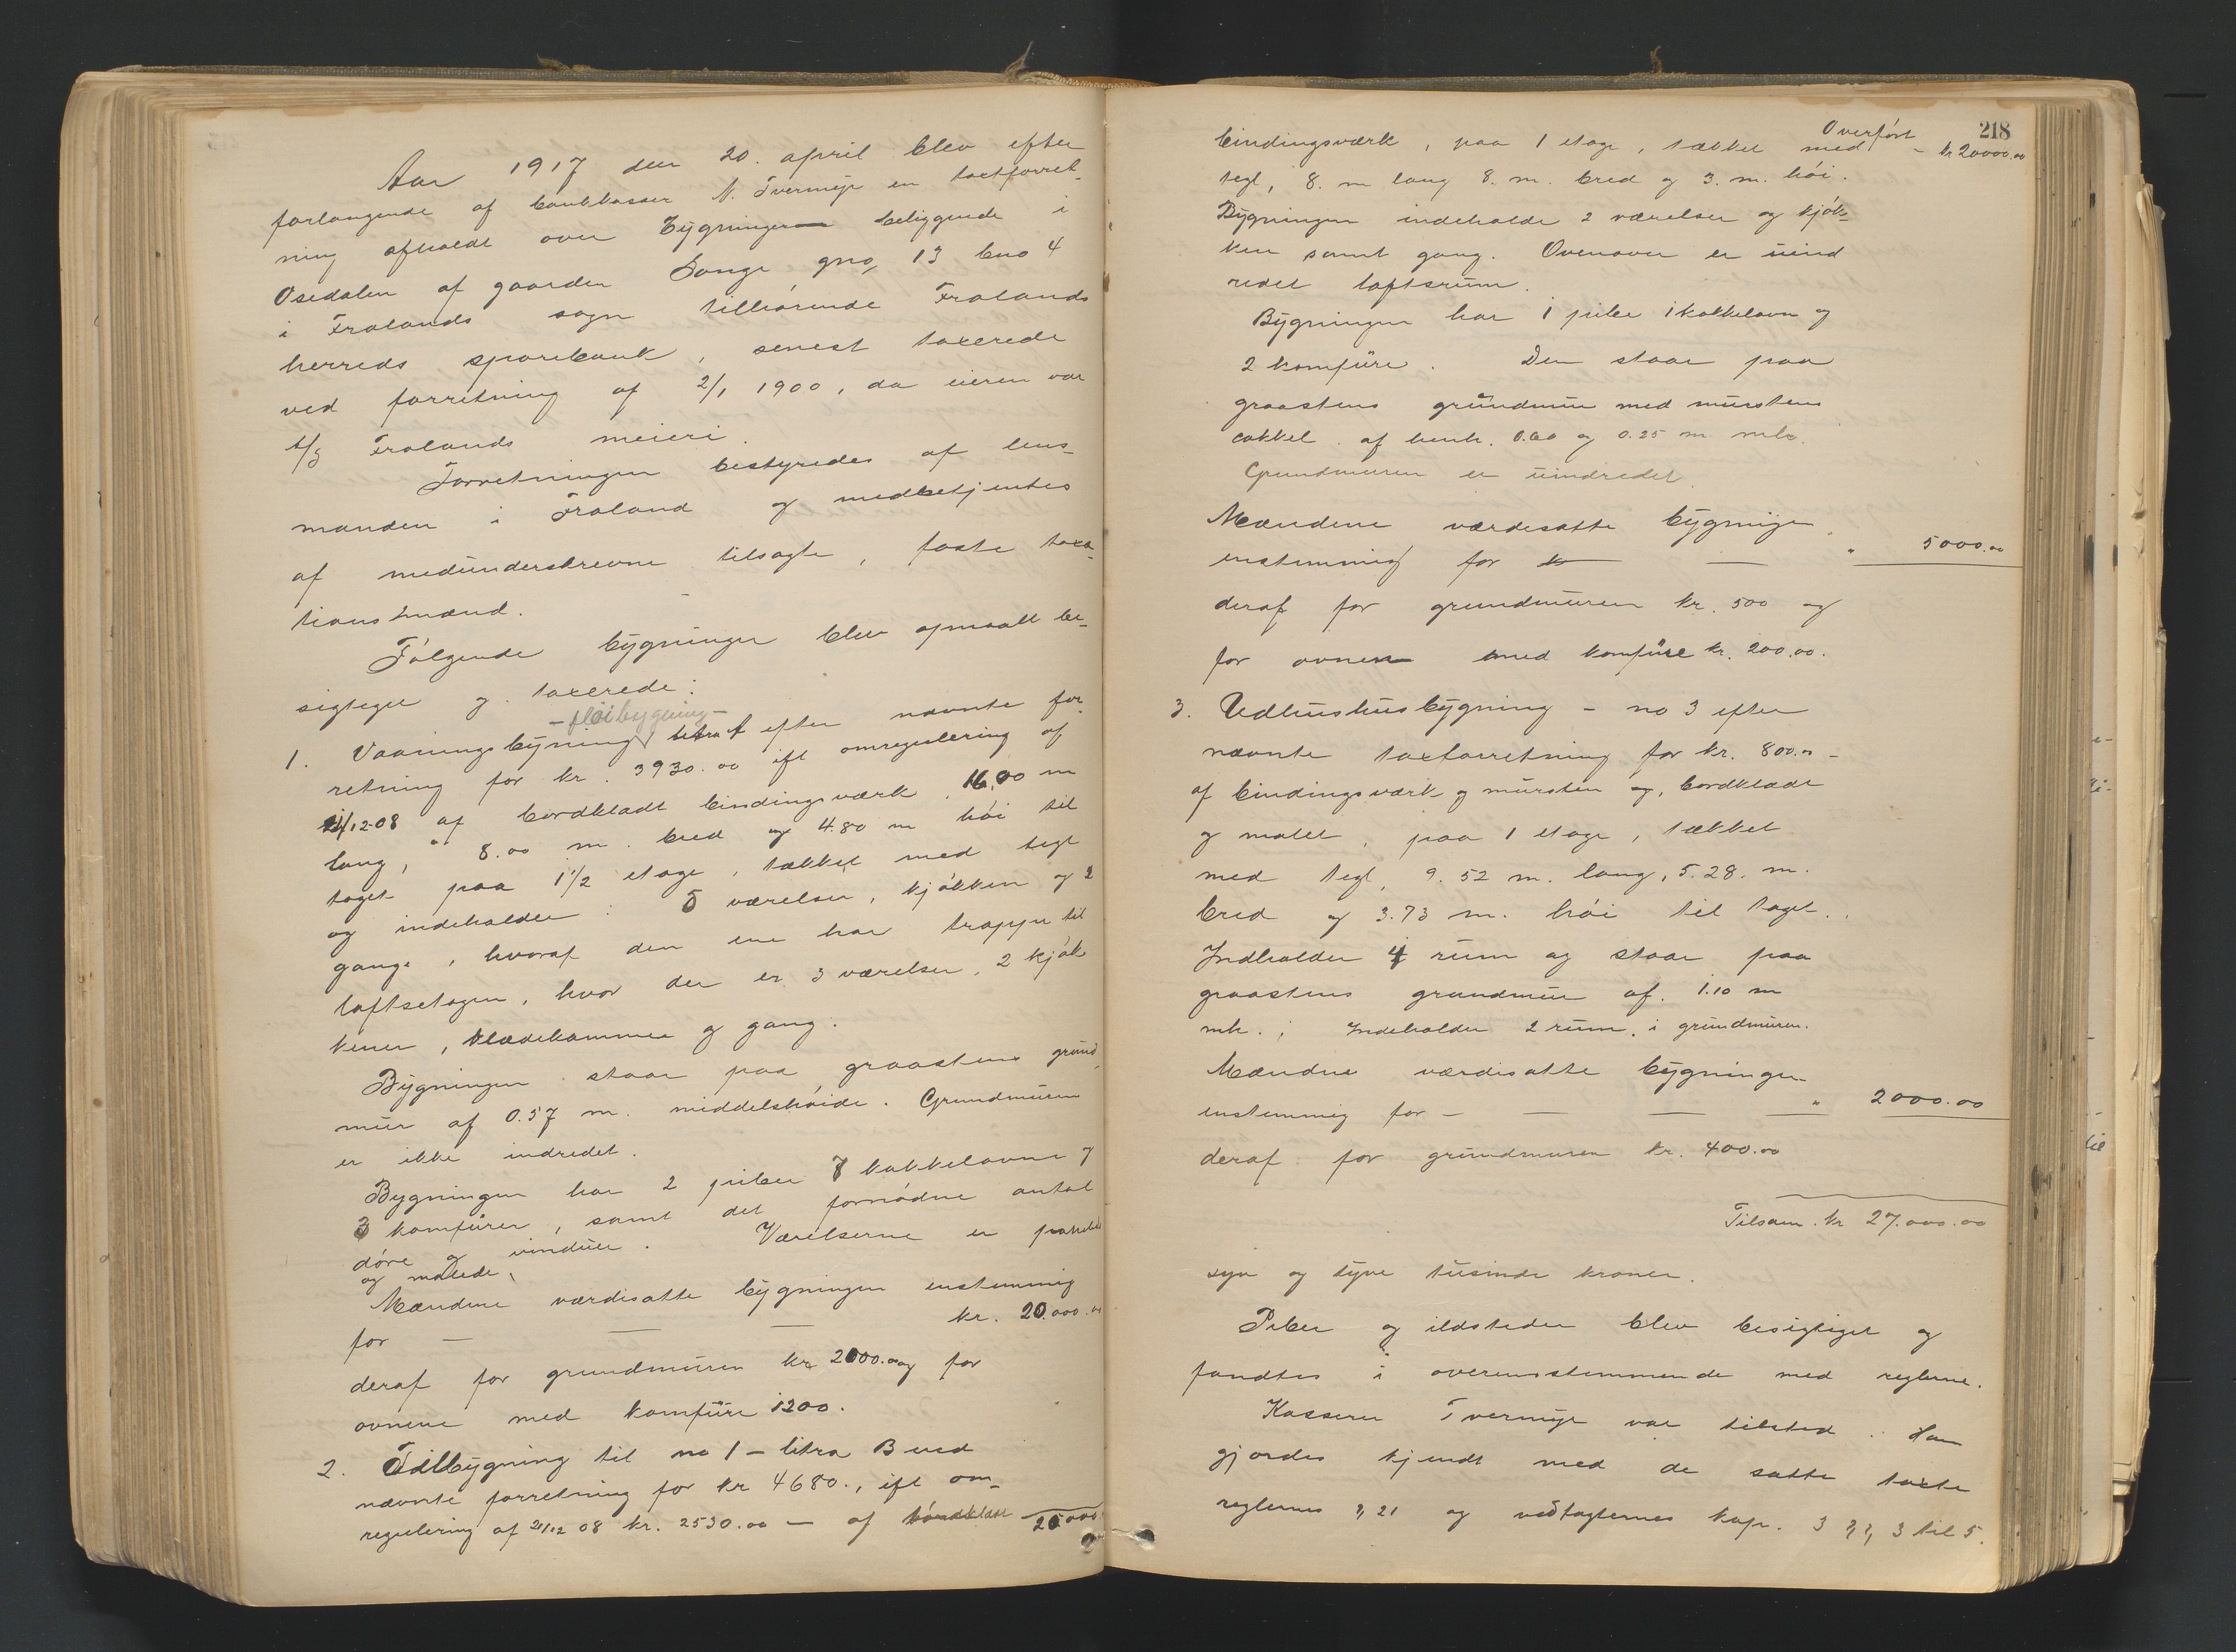 Aar 1917 den 20. april blev efter
forlangende af bankkasser N. Tvermyr en taxtforret-
ning afholdt over bygninger beliggende i
Osedalen af gaarden Songe gno, 13 bno 4
i Frolands sogn tilhørende Frolands
herreds sparebank, senest taxerede
ved forretning af 2/1 1900, da eieren var
A/S Frolands meieri.
Forretningen bestyredes af lens-
manden i Froland og medbetjentes
af medunderskrevne tilsagte, faste taxa-
tionsmænd.
Følgende bygninger blev opmaalt be-
sigtiget og taxerede:
- fløibygning -
1. Vaaningsbyning litra A efter nævnte for-
retning for kr. 3930.00 ifl omregulering af
21/12-08 af bordklædt bindingsværk, 16,00 m
lang, 8.00 m. bred og 4.80 m høi til
taget paa 1 1/2 etage, tækket med tegl
og indeholder: 5 værelser, kjøkken og 2
gange, hvoraf den ene har trappe til
loftsetagen, hvor der er 3 værelser, 2 kjøk-
kener, klædekammer og gang.
Bygningen staar paa graastens grund
mur af 0.57 m. middelshøide. Grundmuren
er ikke indredet.
Bygningen har 2 piber 7 kakkelovne og
3 komfürer, samt det fornødne antal
døre og vinduer. Værelserne er panelede
og malede.
Mændene værdisatte bygningen enstemmig
for — — — kr. 20.000.00
deraf for grundmuren kr 2000.00 og for
ovnene med komfüre 1200.
2. Tilbygning til no 1 - litra B ved
nævnte forretning for kr 4680., ifl om-
regulering af 21/12 08 kr. 2530.00 — af bordklædt 20000
218
Overført
bindingsværk, paa 1 etage, tækket med - kr 20000.00
tegl, 8. m lang 8. m. bred og 3. m. høi.
Bygningen indeholde 2 værelser og kjøk-
ken samt gang. Ovenover er uind
redet loftsrum.
Bygningen har 1 pibe 1 kakkelovn og
2 komfüre. Den staar paa
graastens grundmur med murstens
sokkel af henh. 0.60 og 0.25 m mh.
Grundmuren er uindredet.
Mændene værdisatte bygnigen
enstemmig for kr — — " 5000.00
deraf for grundmuren kr. 500 og
for ovnen med komfüre kr. 200.00.
3. Vedhushusbygning - no 3 efter
nævnte taxtforretning for kr. 800.00 -
af bindingsværk og mursten og, bordklædt
og malet, paa 1 etage, tækket
med tegl, 9.52 m. lang, 5.28. m.
bred og 3.73 m. høi til taget.
Indholder 4 rum og staar paa
graastens grundmur af. 1.10 m
mh.; Indeholder 2 rum. i grundmuren.
Mændne værdisatte bygningen
enstemmig for - — — — " 2000.00
deraf for grundmuren kr. 400.00
Tilsam. kr 27.000.00
syv og tyve tusinde kroner.
Piber og ildsteder blev besigtiget og
fandtes i overensstemmende med reglerne.
Kasserer Tvermyr var tilsted. Han
gjordes kjendt med de satte taxte
reglernes § 21 og vedtægternes kap. 3 §§ 3 til 5.